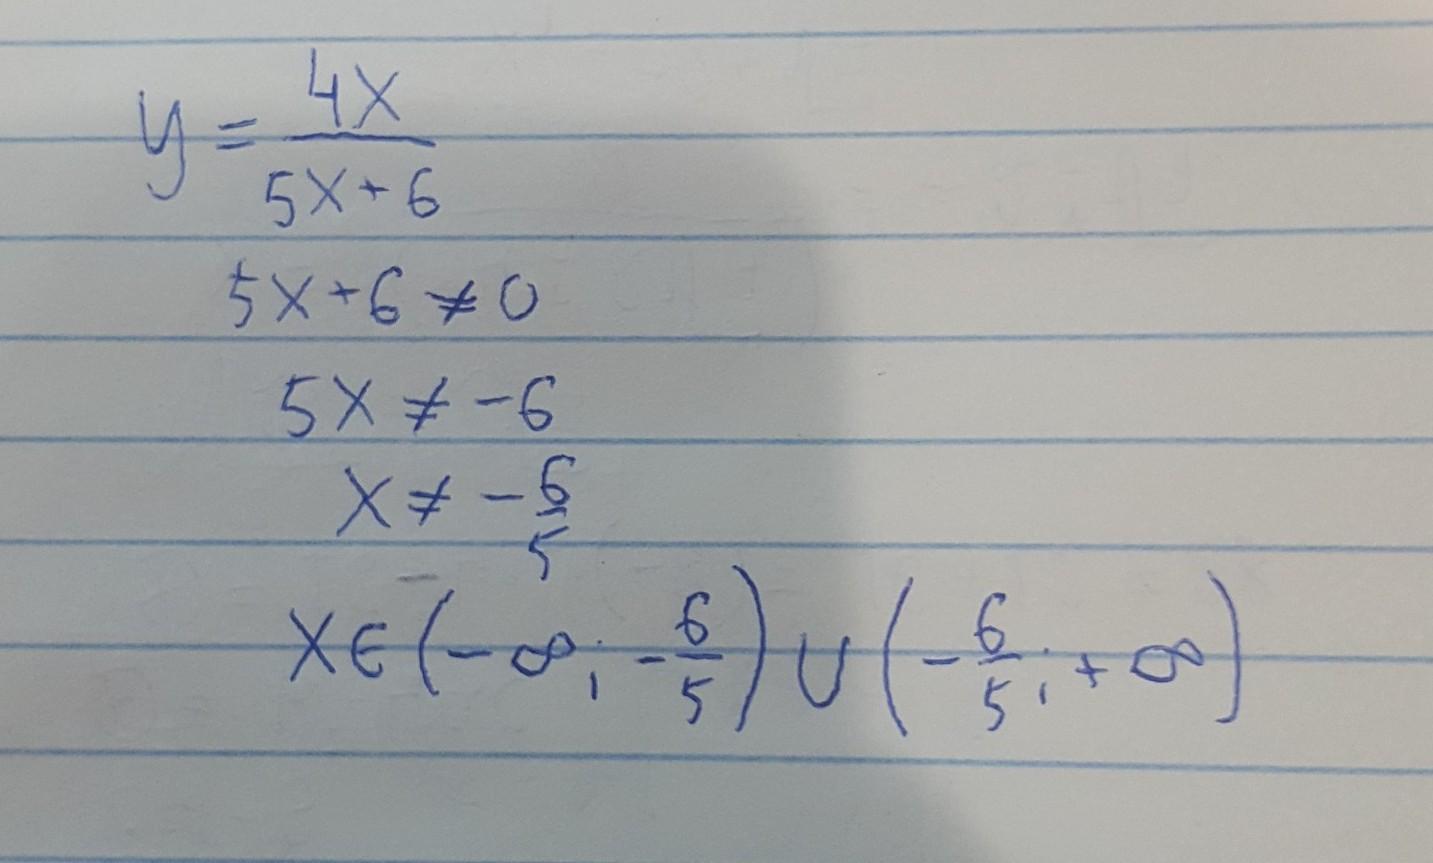 y = 4x / 5x + 6
5x + 6 ≠ 0
5x ≠ -6
x ≠ - 6/5
x ∈ (-∞; -6/5) ∪ (-6/5; +∞)